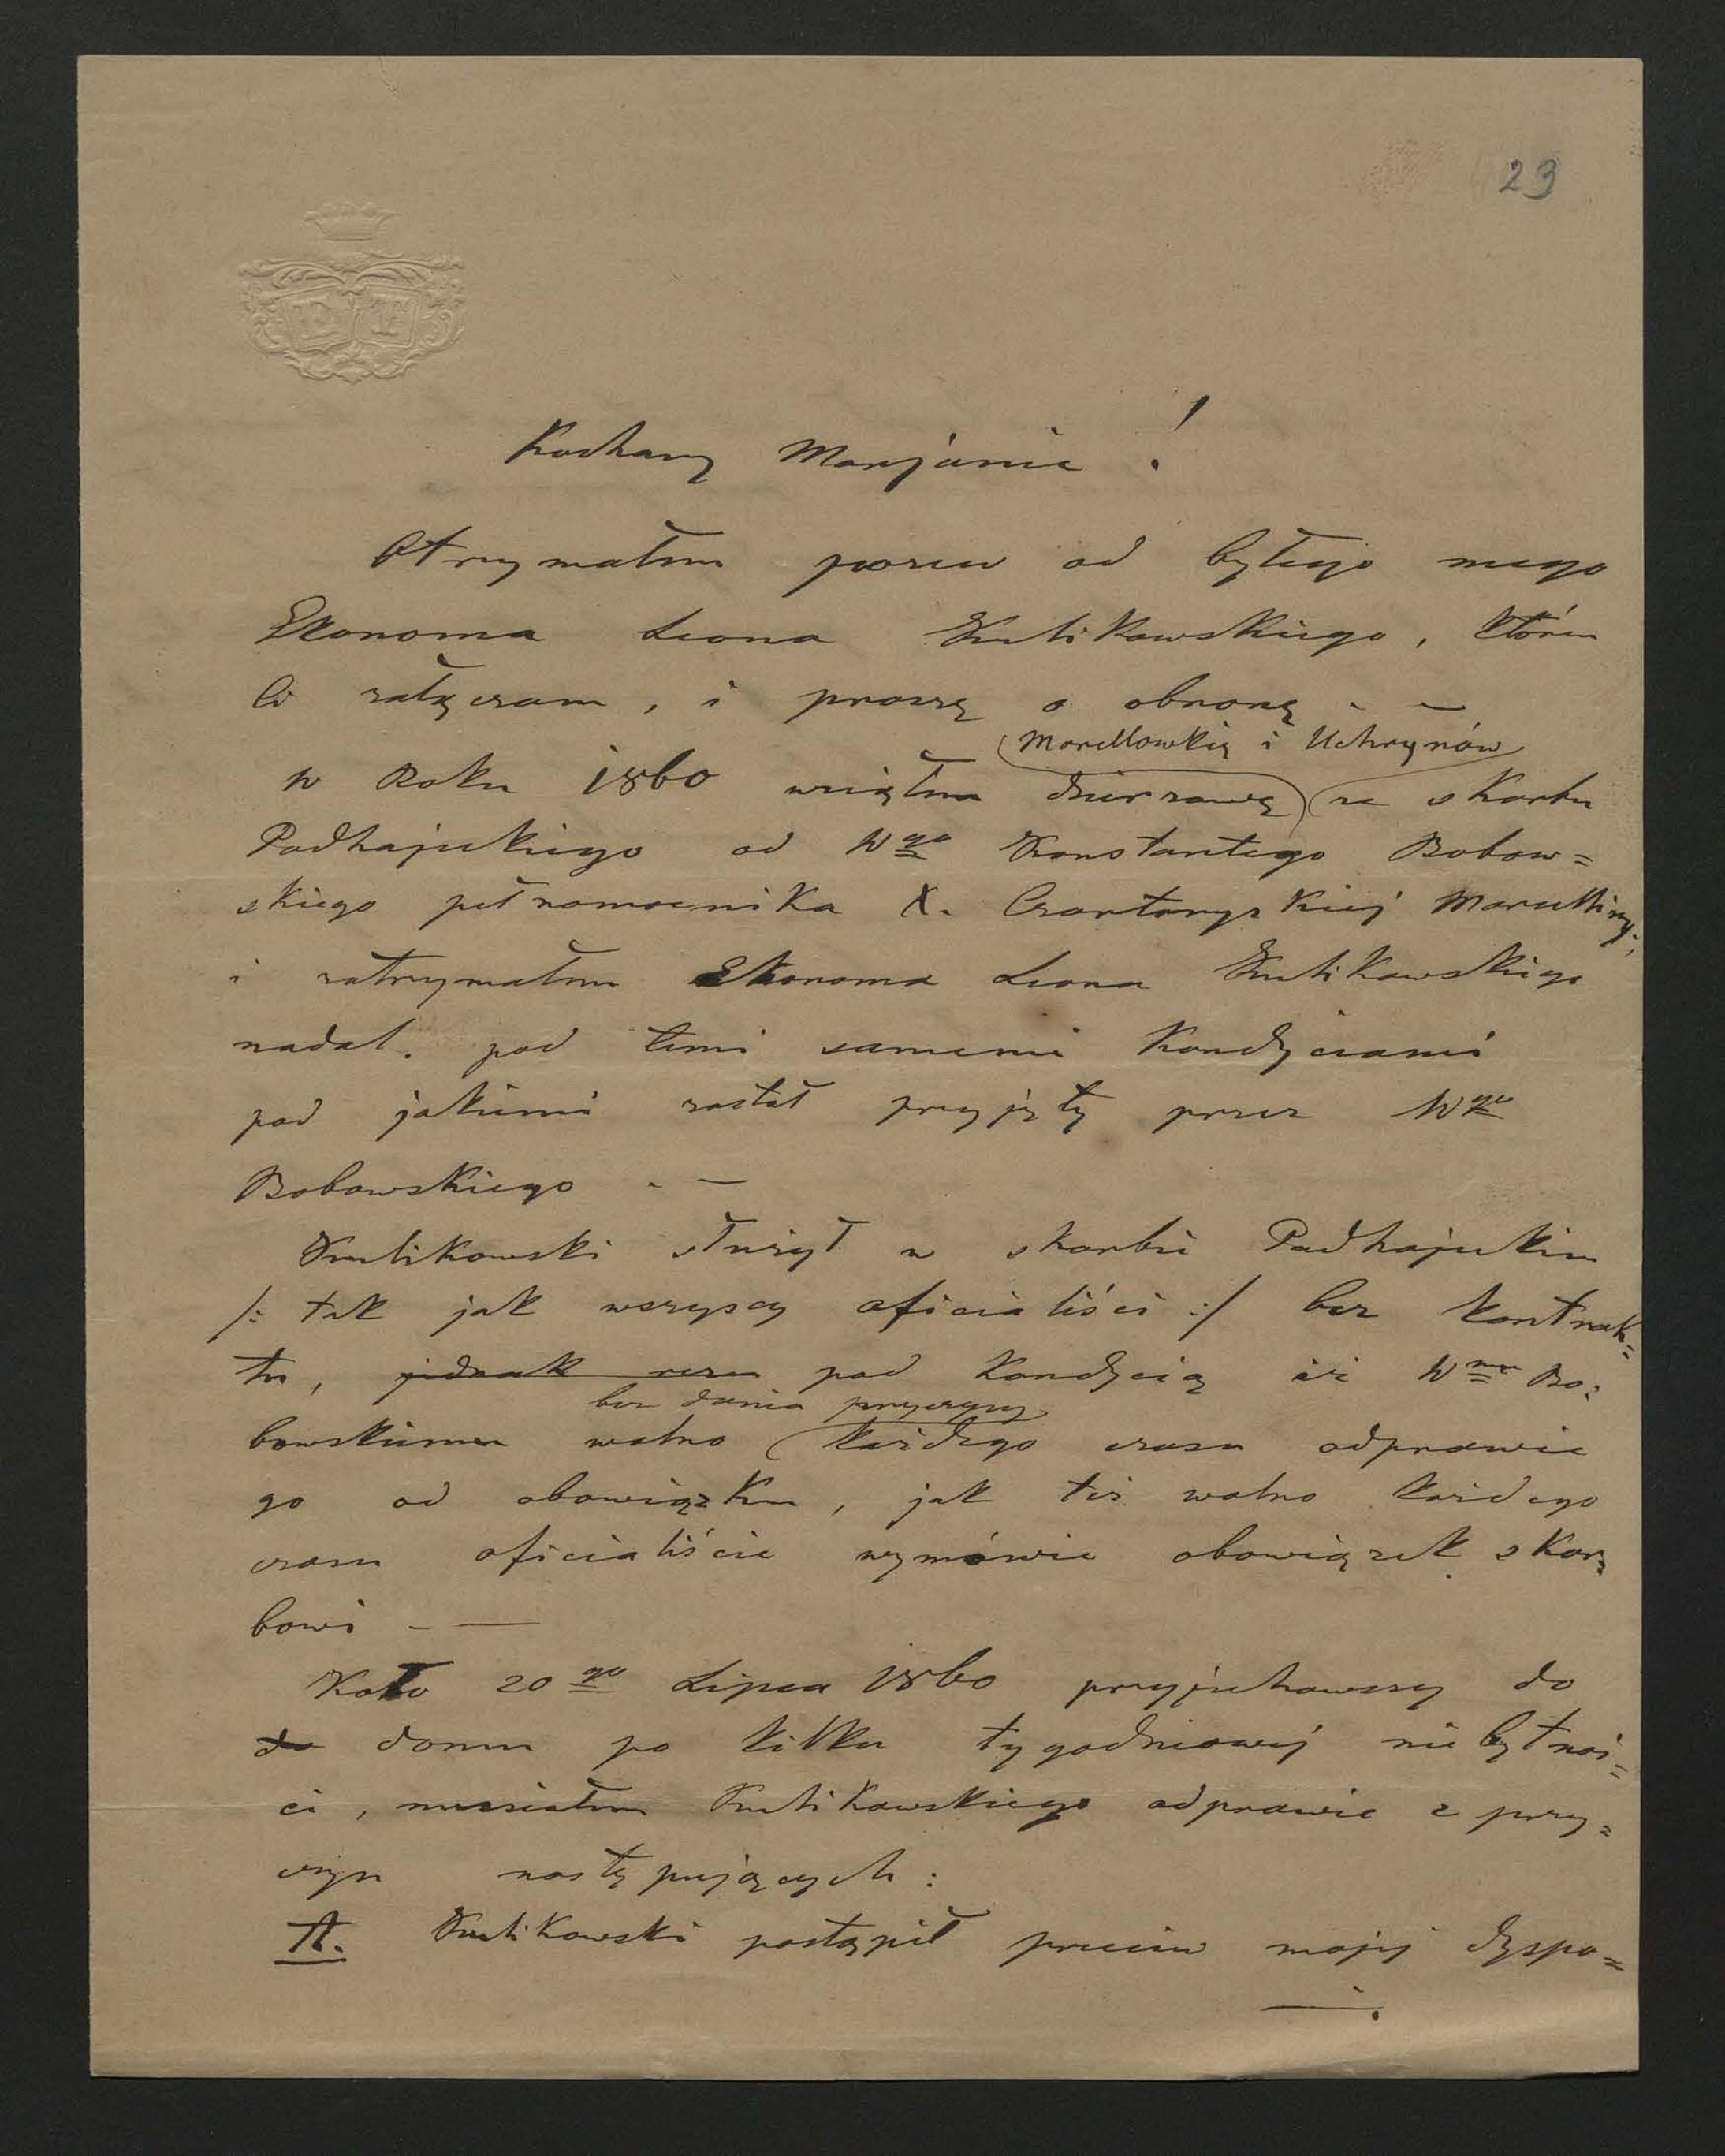 23
Kochany Marjanie !
Otrzymałem pozew od byłego mego
Ekonoma Leona Kulikowskiego, który
Ci załączam, i proszę o obronę. —
Marcellowkię i Uchrynów
W Roku 1860 wziąłem dzierzawę ze skarbu
Podhajeckiego od Wgo Konstantego Bobow=
skiego pełnomocnika X. Czartoryskiej Marcelliny;
i zatrzymałem Ekonoma Leona Kulikowskiego
nadal. pod temi samemi Kondyciami
pod jakiemi został przyjęty przez Wgo
Bobowskiego . —
Kulikowski służył w skarbie Podhajeckim
/: tak jak wszyscy oficialiści :/ bez kontrak=
tu, jednak pod Kondycią iż Wmu Bo=
bez dania przyczyny
bowskiemu wolno każdego czasu odprawić
go od obowiązku, jak też wolno każdego
czasu oficialiście wymówić obowiązek skar=
bowi . —
Koło 20go Lipca 1860 przyjechawszy do
do domu po kilku tygodniowej niebytnoś=
ci, musiałem Kulikowskiego odprawić z przy=
czyn następujących :
A. Kulikowski postąpił przeciw mojej dyspo=